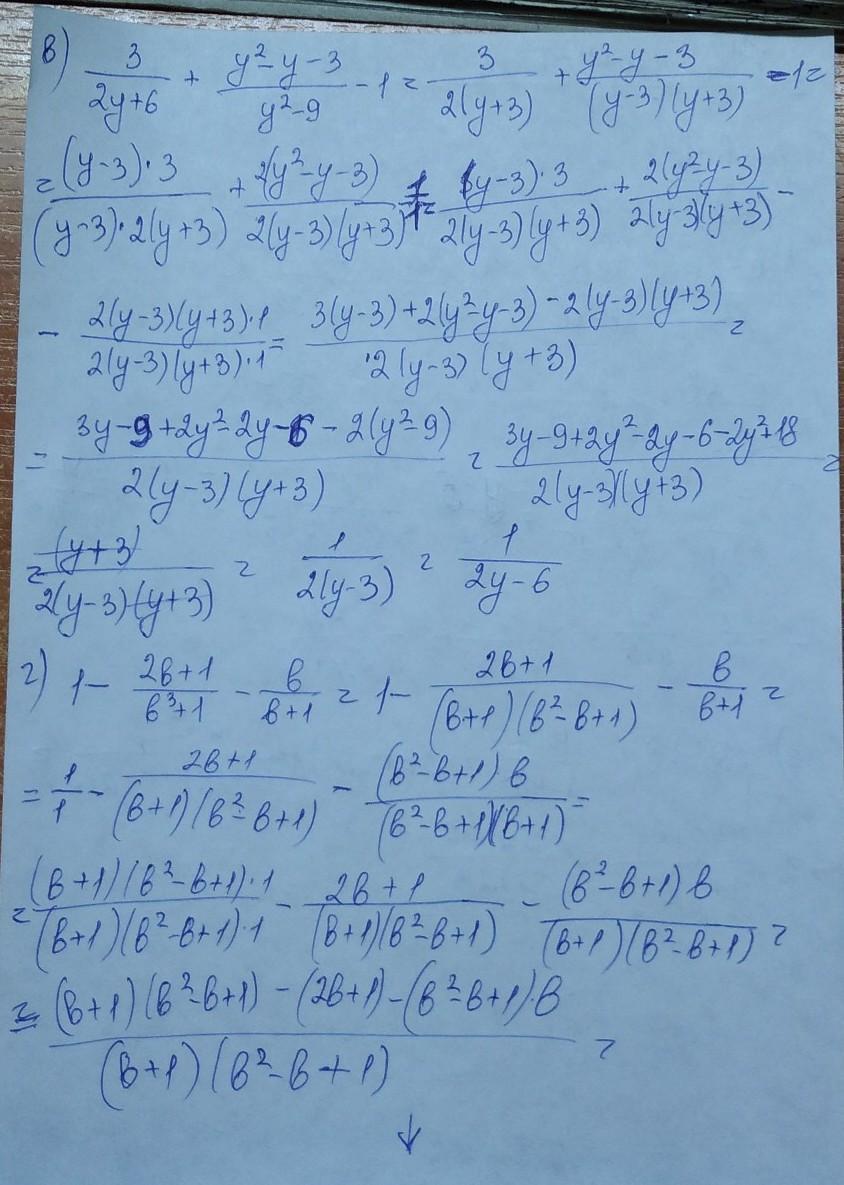 в) 3/(2y+6) + (y²-y-3)/(y²-9) - 1 = 3/(2(y+3)) + (y²-y-3)/((y-3)(y+3)) - 1 =
= ((y-3)·3)/((y-3)·2(y+3)) + (2(y²-y-3))/(2(y-3)(y+3)) - 1/1 = ((y-3)·3)/(2(y-3)(y+3)) + (2(y²-y-3))/(2(y-3)(y+3)) -
- (2(y-3)(y+3)·1)/(2(y-3)(y+3)·1) = (3(y-3)+2(y²-y-3)-2(y-3)(y+3))/(2(y-3)(y+3)) =
= (3y-9+2y²-2y-6-2(y²-9))/(2(y-3)(y+3)) = (3y-9+2y²-2y-6-2y²+18)/(2(y-3)(y+3)) =
= (y+3)/(2(y-3)(y+3)) = 1/(2(y-3)) = 1/(2y-6)
г) 1 - (2в+1)/(в³+1) - в/(в+1) = 1 - (2в+1)/((в+1)(в²-в+1)) - в/(в+1) =
= 1/1 - (2в+1)/((в+1)(в²-в+1)) - ((в²-в+1)в)/((в²-в+1)(в+1)) =
= ((в+1)(в²-в+1)·1)/((в+1)(в²-в+1)·1) - (2в+1)/((в+1)(в²-в+1)) - ((в²-в+1)в)/((в+1)(в²-в+1)) =
= ((в+1)(в²-в+1)-(2в+1)-(в²-в+1)·в)/((в+1)(в²-в+1)) =
↓